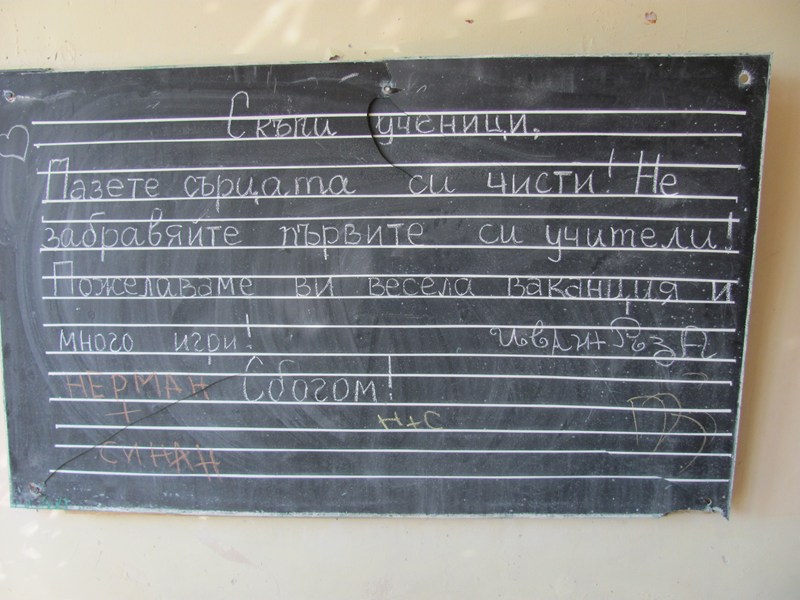 Скъпи ученици,
Пазете сърцата си чисти! Не
забравяйте първите си учители!
Пожелаваме ви весела ваканция и
много игри!
Иван+
Сбогом!
НЕРМАН
+
СИНАН
Н+С